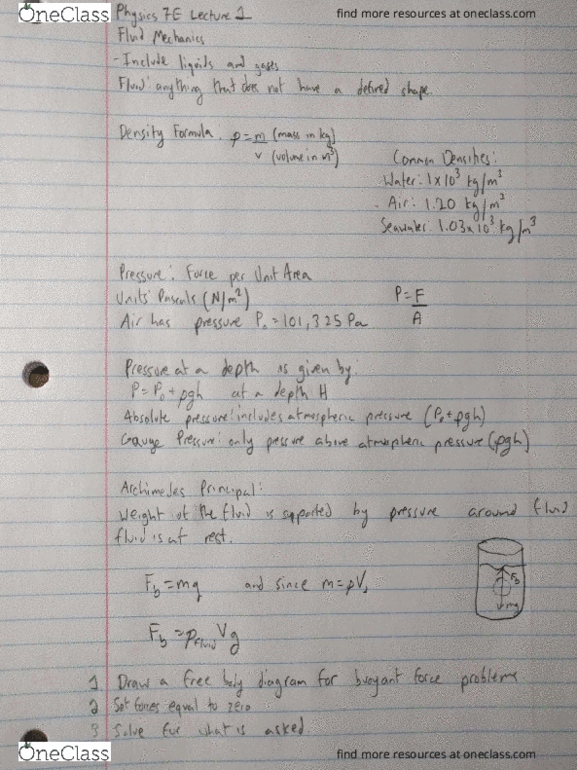 OneClass
find more resources at oneclass.com
Physics 7E Lecture 1
Fluid Mechanics
- Include liquids and gases
Fluid: anything that does not have a defined shape.
Density Formula ρ = m (mass in kg)
v (volume in m³)
Common Densities:
Water: 1x10³ kg/m³
- Air: 1.20 kg/m³
Seawater: 1.03x10³ kg/m³
Pressure: Force per Unit Area
Units: Pascals (N/m²)
P = F
A
Air has pressure P₀ = 101,325 Pa
Pressure at a depth is given by:
P = P₀ + ρgh at a depth H
Absolute pressure: includes atmospheric pressure (P₀ + ρgh)
Gauge Pressure: only pressure above atmospheric pressure (ρgh)
Archimedes Principal:
Weight of the fluid is supported by pressure around fluid
fluid is at rest.
F_b = mg and since m = ρV,
F_b
mg
F_b = ρ_fluid Vg
1 Draw a free body diagram for buoyant force problems
2 Set forces equal to zero
3 Solve for what is asked.
OneClass
find more resources at oneclass.com